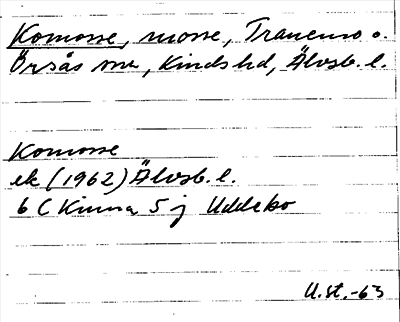 Komosse, mosse, Tranemo o.
Örsås snr, Kinds hd, Älvsb. l.
Komosse
ek (1962) Älvsb. l.
6 C Kinna 5 j Uddebo
U.st.-63